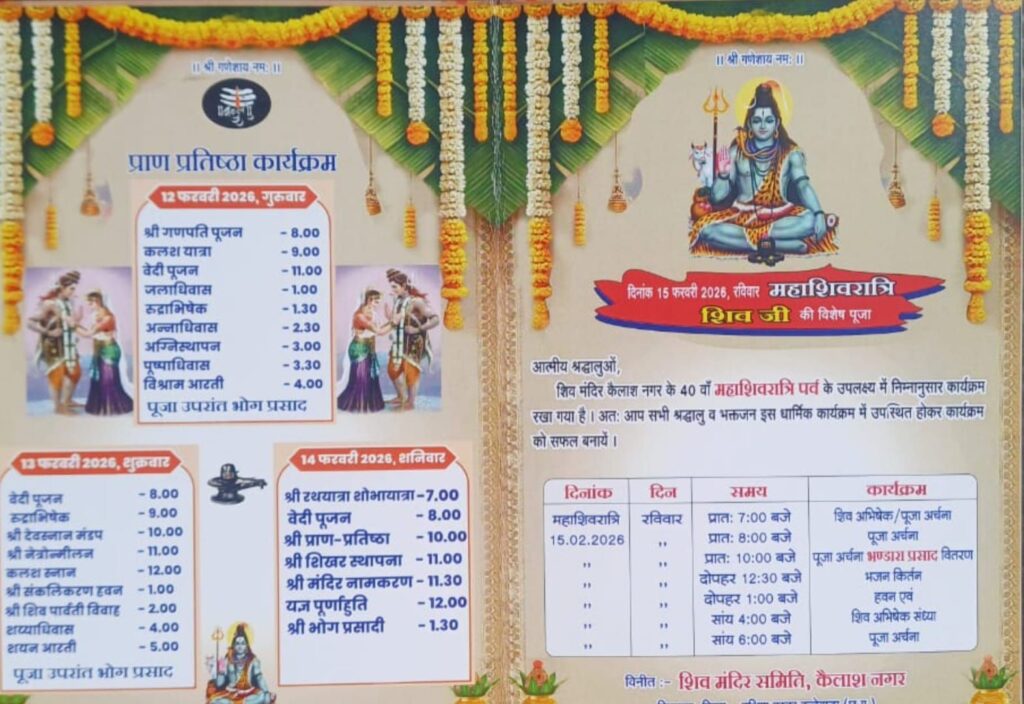 ॥ श्री गणेशाय नमः ॥
प्राण प्रतिष्ठा कार्यक्रम
12 फरवरी 2026, गुरुवार
श्री गणपति पूजन - 8.00
कलश यात्रा - 9.00
वेदी पूजन - 11.00
जलाधिवास - 1.00
रुद्राभिषेक - 1.30
अन्नाधिवास - 2.30
अग्निस्थापन - 3.00
पूष्पाधिवास - 3.30
विश्राम आरती - 4.00
पूजा उपरांत भोग प्रसाद
13 फरवरी 2026, शुक्रवार
वेदी पूजन - 8.00
रुद्राभिषेक - 9.00
श्री देवस्नान मंडप - 10.00
श्री नेत्रोन्मीलन - 11.00
कलश स्नान - 12.00
श्री संकलिकरण हवन - 1.00
श्री शिव पार्वती विवाह - 2.00
शय्याधिवास - 4.00
शयन आरती - 5.00
पूजा उपरांत भोग प्रसाद
14 फरवरी 2026, शनिवार
श्री रथयात्रा शोभायात्रा - 7.00
वेदी पूजन - 8.00
श्री प्राण-प्रतिष्ठा - 10.00
श्री शिखर स्थापना - 11.00
श्री मंदिर नामकरण - 11.30
यज्ञ पूर्णाहुति - 12.00
श्री भोग प्रसादी - 1.30
॥ श्री गणेशाय नमः ॥
दिनांक 15 फरवरी 2026, रविवार महाशिवरात्रि
शिव जी की विशेष पूजा
आत्मीय श्रद्धालुओं,
शिव मंदिर कैलाश नगर के 40 वाँ महाशिवरात्रि पर्व के उपलक्ष्य में निम्नानुसार कार्यक्रम
रखा गया है। अतः आप सभी श्रद्धालु व भक्तजन इस धार्मिक कार्यक्रम में उपस्थित होकर कार्यक्रम
को सफल बनायें।
दिनांक दिन समय कार्यक्रम
महाशिवरात्रि रविवार प्रातः 7:00 बजे शिव अभिषेक/पूजा अर्चना
15.02.2026 ,, प्रातः 8:00 बजे पूजा अर्चना
,, ,, प्रातः 10:00 बजे पूजा अर्चना भण्डारा प्रसाद वितरण
,, ,, दोपहर 12:30 बजे भजन किर्तन
,, ,, दोपहर 1:00 बजे हवन एवं
,, ,, सांय 4:00 बजे शिव अभिषेक संध्या
,, ,, सांय 6:00 बजे पूजा अर्चना
विनीत :- शिव मंदिर समिति, कैलाश नगर